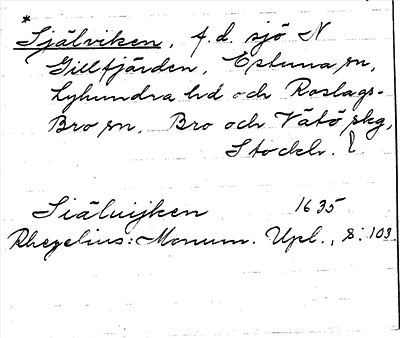 * Själviken, f.d. sjö N
Gillfjärden, Estuna sn,
Lyhundra hd och Roslags-
Bro sn, Bro och Vätö skg,
Stockh. l.
Siäluijken 1635
Rhezelius: Monum. Upl., s. 103.